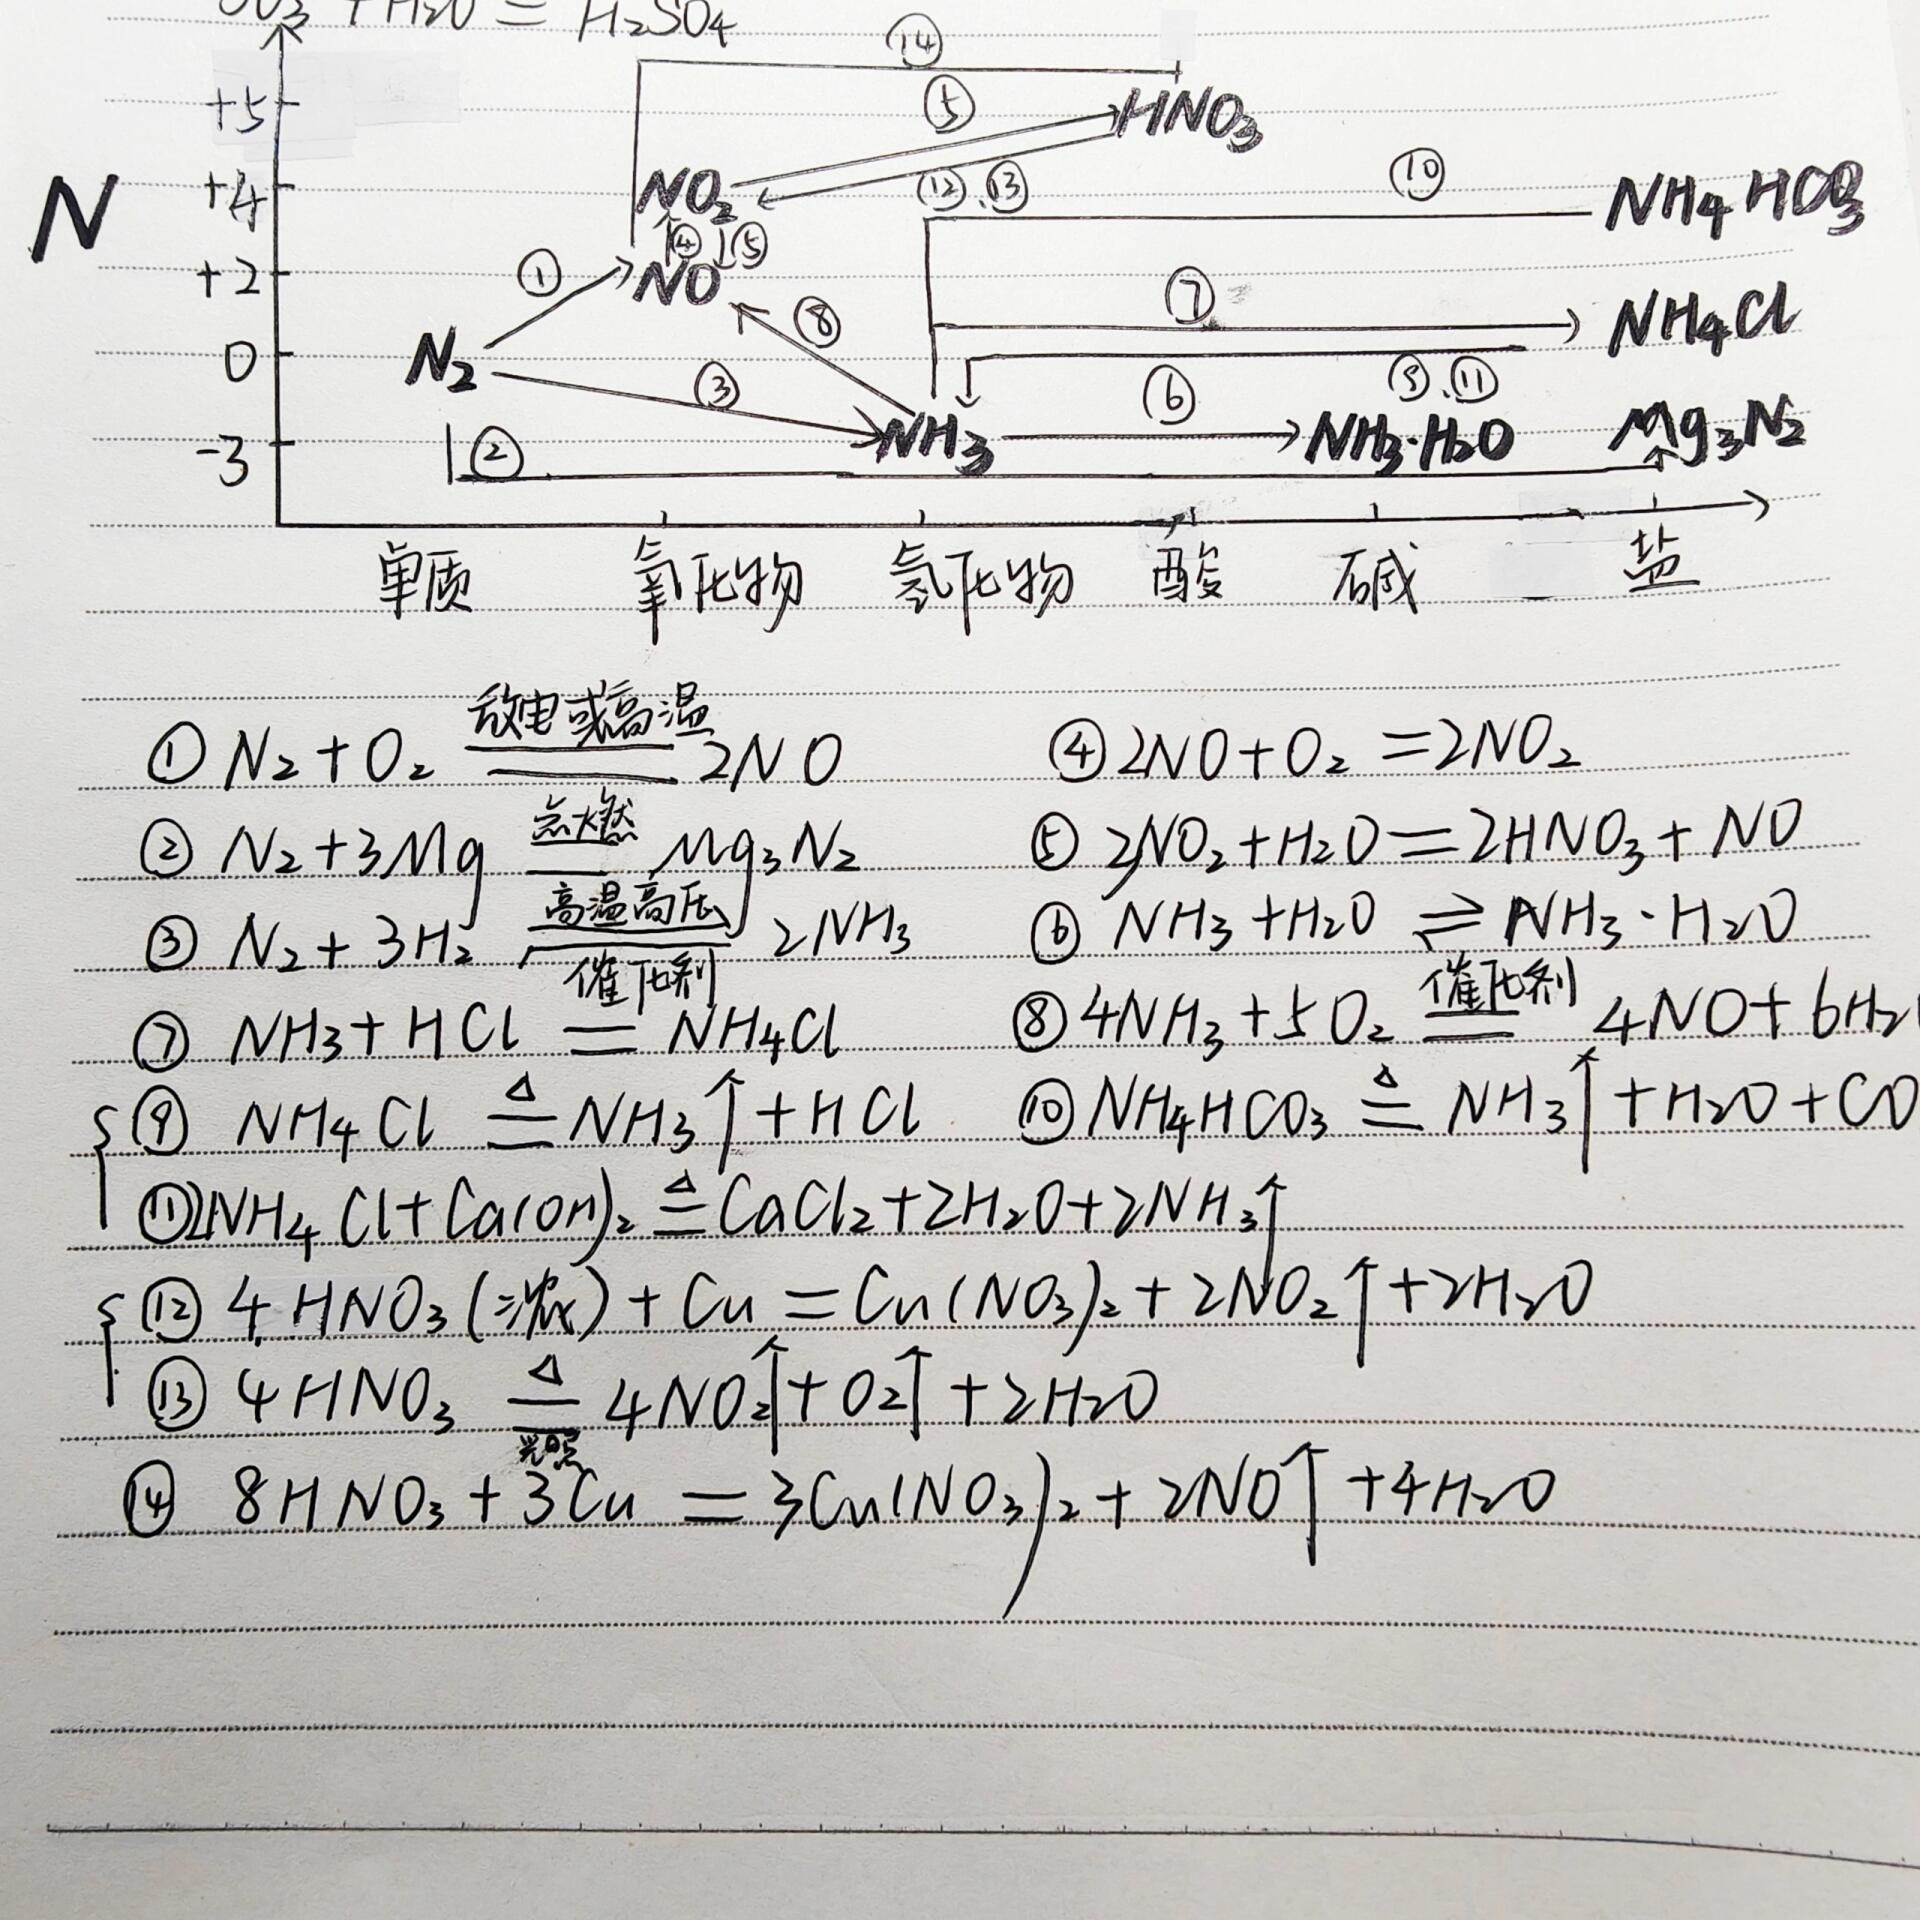 +H₂O = H₂SO₄
⑭
+5 ⑤ HNO₃
N +4 NO₂ ⑫、⑬ ⑩ NH₄HCO₃
④ ⑤
+2 ① NO ⑦ NH₄Cl
⑧
0 N₂ ③ ⑥ ⑨、⑪
-3 ② NH₃ NH₃·H₂O Mg₃N₂
单质 氧化物 氢化物 酸 碱 盐
放电或高温
① N₂+O₂ = 2NO ④ 2NO+O₂ =2NO₂
点燃
② N₂+3Mg = Mg₃N₂ ⑤ 3NO₂+H₂O=2HNO₃+NO
高温高压
③ N₂+3H₂ = 2NH₃ ⑥ NH₃+H₂O ⇌ NH₃·H₂O
催化剂 催化剂
⑦ NH₃+HCl = NH₄Cl ⑧ 4NH₃+5O₂ = 4NO+6H₂
△ △
⑨ NH₄Cl = NH₃↑+HCl ⑩ NH₄HCO₃ = NH₃↑+H₂O+CO
△
⑪ 2NH₄Cl+Ca(OH)₂ = CaCl₂+2H₂O+2NH₃↑
⑫ 4HNO₃(浓)+Cu = Cu(NO₃)₂+2NO₂↑+2H₂O
△
⑬ 4HNO₃ = 4NO₂↑+O₂↑+2H₂O
光照
⑭ 8HNO₃+3Cu = 3Cu(NO₃)₂+2NO↑+4H₂O